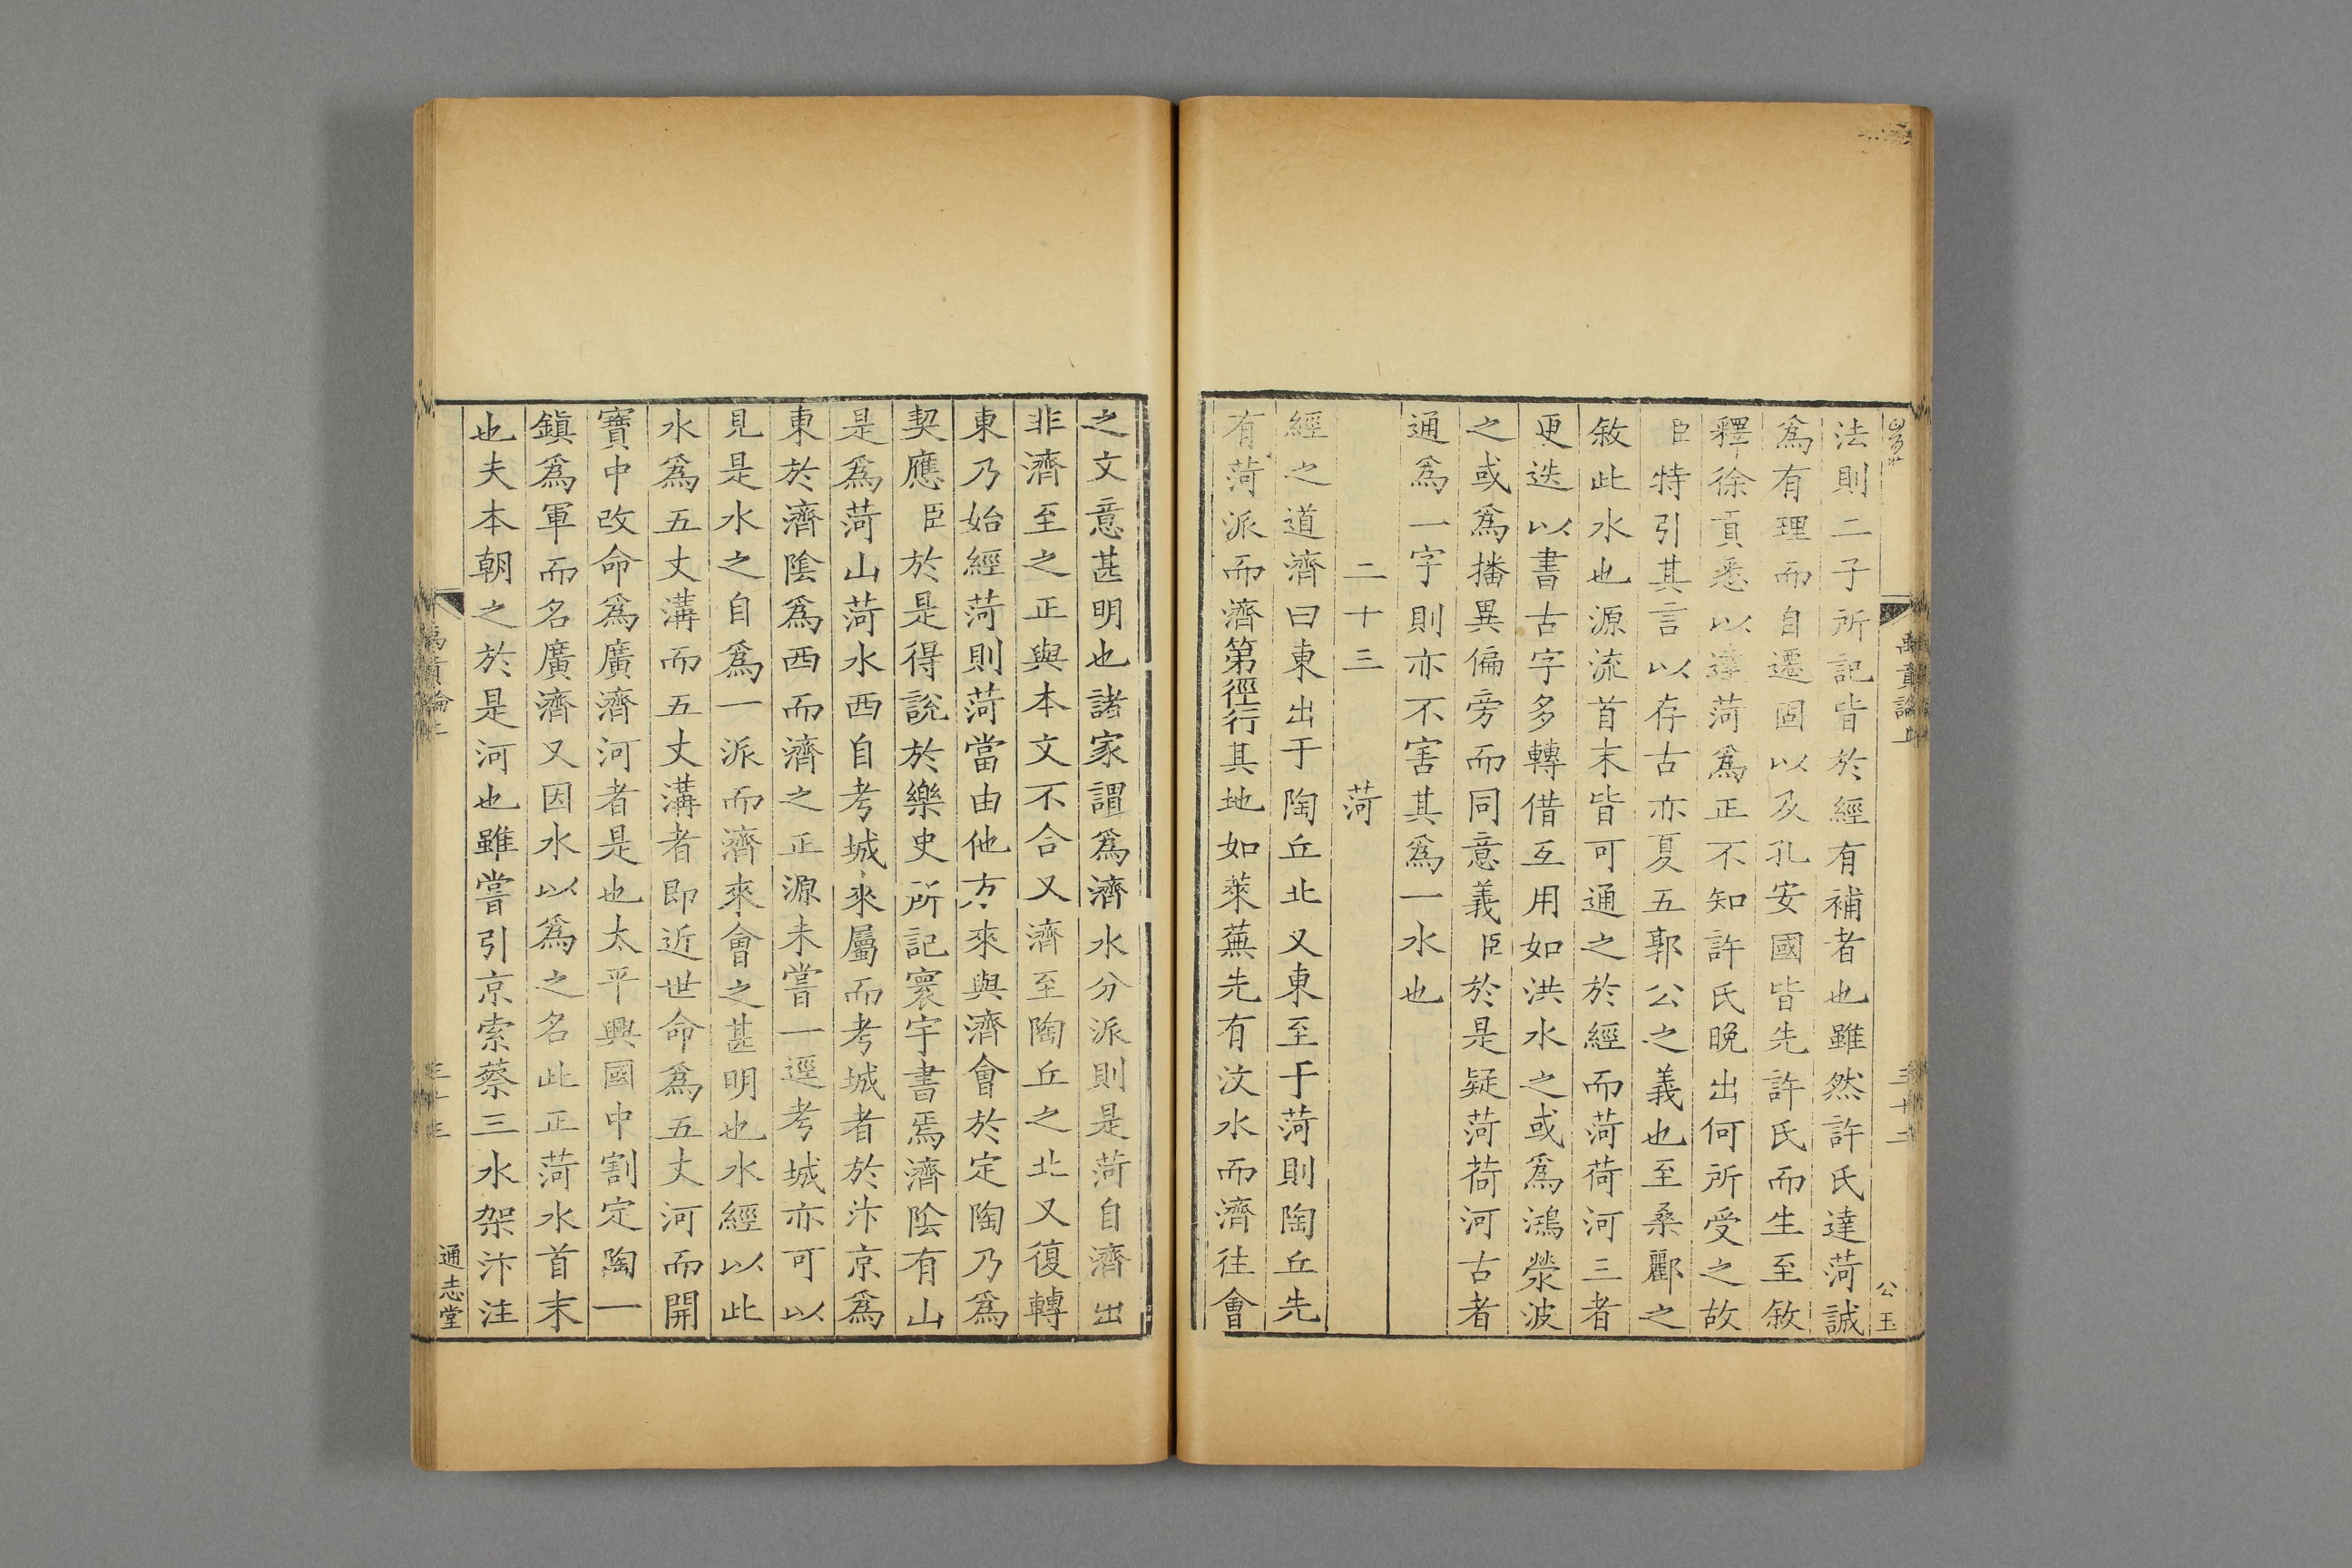 禹貢論上
三十二
公玉
法則二子所記皆於經有補者也雖然許氏達菏誠
爲有理而自遷固以及孔安國皆先許氏而生至敘
釋徐貢悉以達菏爲正不知許氏晚出何所受之故
臣特引其言以存古亦夏五郭公之義也至桑酈之
敘此水也源流首末皆可通之於經而菏荷河三者
更迭以書古字多轉借互用如洪水之或爲鴻滎波
之或爲播異偏旁而同意義臣於是疑菏荷河古者
通爲一字則亦不害其爲一水也
二十三 菏
經之道濟曰東出于陶丘北又東至于菏則陶丘先
有菏派而濟第徑行其地如萊蕪先有汶水而濟往會
之文意甚明也諸家謂爲濟水分派則是菏自濟出
非濟至之正與本文不合又濟至陶丘之北又復轉
東乃始經菏則菏當由他方來與濟會於定陶乃爲
契應臣於是得說於樂史所記寰宇書焉濟陰有山
是爲菏山菏水西自考城來屬而考城者於汴京爲
東於濟陰爲西而濟之正源未嘗一逕考城亦可以
見是水之自爲一派而濟來會之甚明也水經以此
水爲五丈溝而五丈溝者即近世命爲五丈河而開
寶中改命爲廣濟河者是也太平興國中割定陶一
鎮爲軍而名廣濟又因水以爲之名此正菏水首末
也夫本朝之於是河也雖嘗引京索蔡三水架汴注
禹貢論上
三十三
通志堂